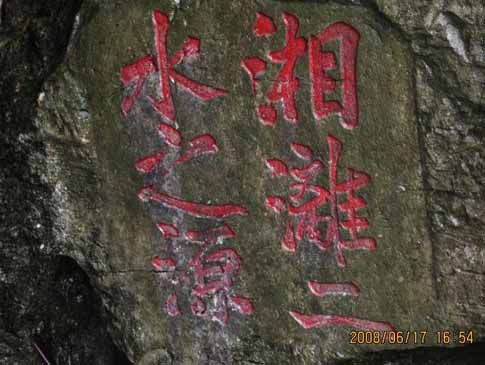 湘漓二
水之源
2008/06/17 16 54